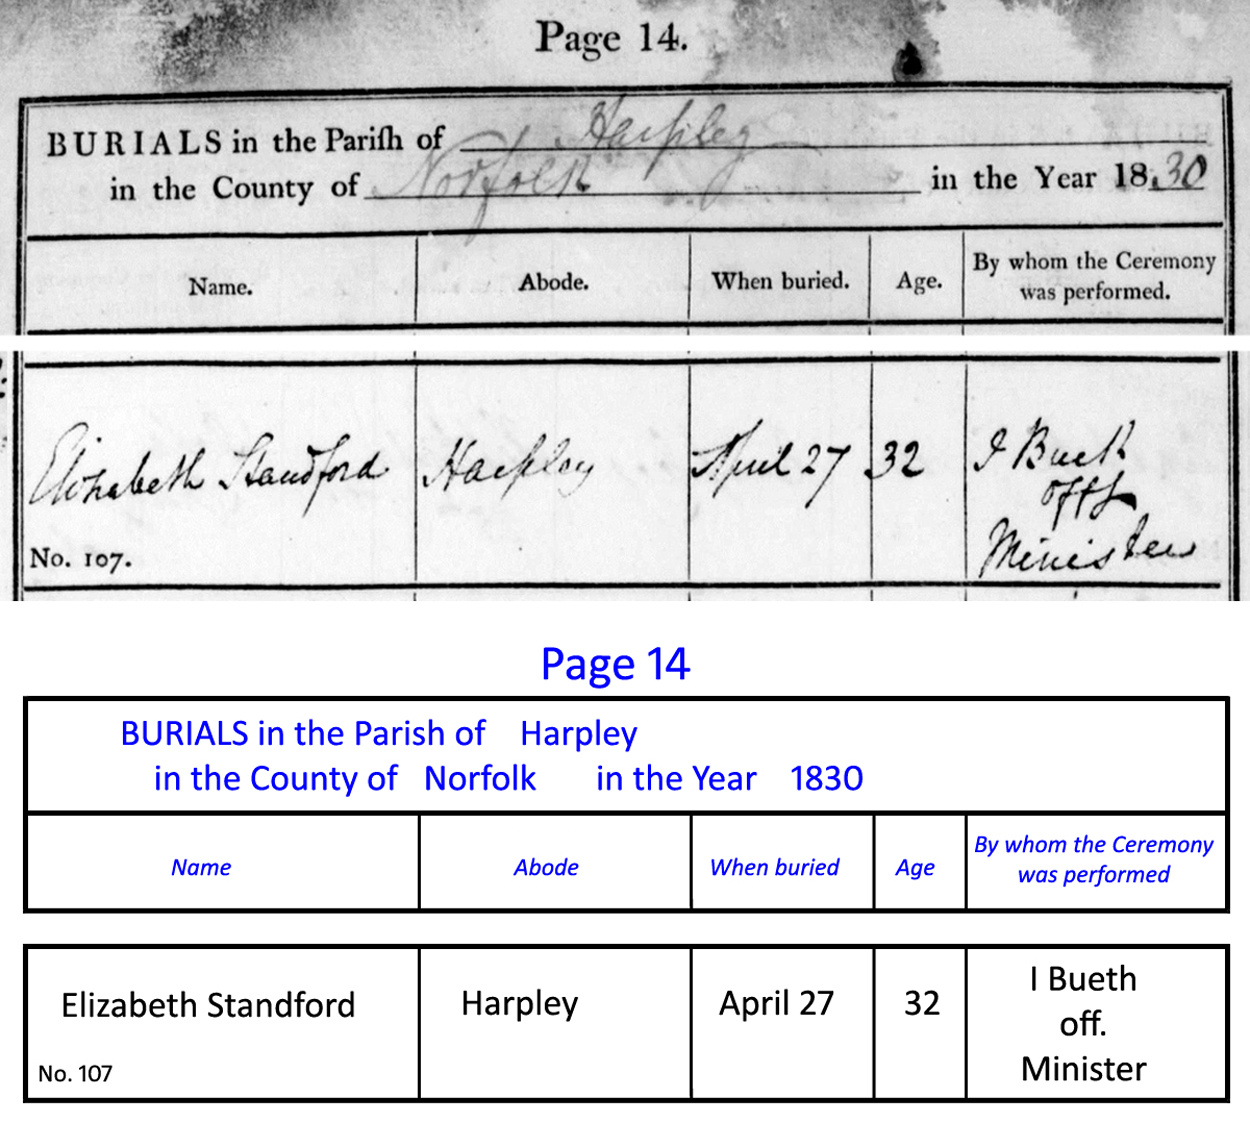 Page 14.
BURIALS in the Pariſh of Harpley
in the County of Norfolk in the Year 1830
Name. Abode. When buried. Age. By whom the Ceremony was performed.
Elizabeth Standford Harpley April 27 32 I Buck
offg
Minister
No. 107.
Page 14
BURIALS in the Parish of Harpley
in the County of Norfolk in the Year 1830
Name Abode When buried Age By whom the Ceremony was performed
Elizabeth Standford Harpley April 27 32 I Bueth
off.
Minister
No. 107